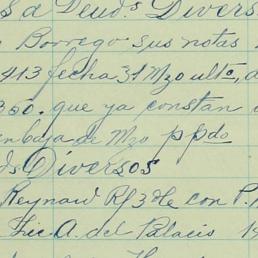 s a Deud.s Divers
Borrego sus notas
413 fecha 31 Mzo ulto,
350, que ya constan
en baja de Mzo ppdo
ds Diversos
Reynard Rf 3 de con P.
Lic. A. del Palacio 1